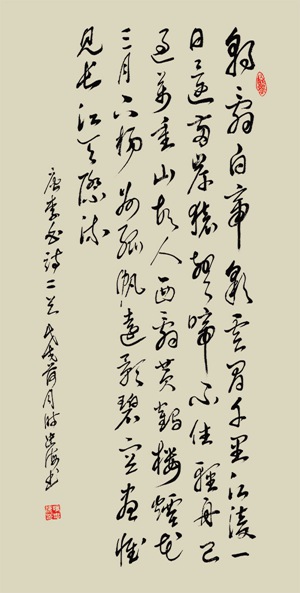 朝辭白帝彩雲間千里江陵一
日還兩岸猿聲啼不住輕舟已
過萬重山故人西辭黃鶴樓煙花
三月下揚州孤帆遠影碧空盡惟
見長江天際流
唐李白詩二首戊戌荷月書